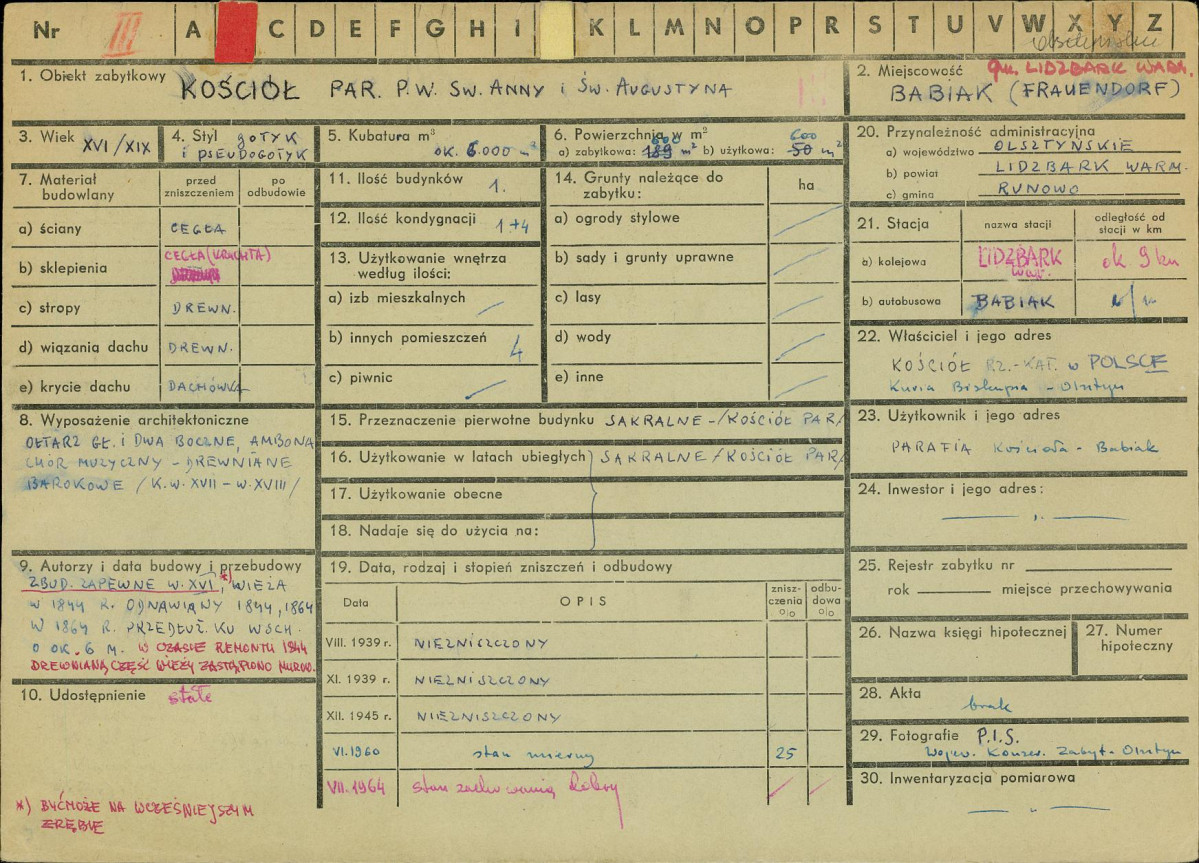 Nr III A C D E F G H I K L M N O P R S T U V W X Y Z
1. Obiekt zabytkowy
KOŚCIÓŁ PAR. P.W. ŚW. ANNY i ŚW. AUGUSTYNA
2. Miejscowość gm. LIDZBARK WARM.
BABIAK (FRAUENDORF)
3. Wiek XVI/XIX
4. Styl gOTYK
i PSEUDOGOTYK
5. Kubatura m³
OK. 6.000 m³
6. Powierzchnia w m²
a) zabytkowa: 600 189 m² b) użytkowa: 600 50 m²
7. Materiał budowlany
przed zniszczeniem
po odbudowie
a) ściany CEGŁA
b) sklepienia CEGŁA (KRUCHTA)
c) stropy DREWN.
d) wiązania dachu DREWN.
e) krycie dachu DACHÓWKA
8. Wyposażenie architektoniczne
OŁTARZ GŁ. i DWA BOCZNE, AMBONA
CHÓR MUZYCZNY - DREWNIANE
BAROKOWE /K.W. XVII - W. XVIII/
9. Autorzy i data budowy i przebudowy
ZBUD. ZAPEWNE W. XVI *), WIEŻA
W 1844 R. ODNAWIANY 1844, 1864
W 1864 R. PRZEDŁUŻ. KU WSCH.
O OK. 6 M. W CZASIE REMONTU 1844
DREWNIANĄ CZĘŚĆ WIEŻY ZASTĄPIONO MUROW.
10. Udostępnienie stałe
*) BYĆ MOŻE NA WCZEŚNIEJSZYM
ZRĘBIE
11. Ilość budynków 1.
12. Ilość kondygnacji 1+4
13. Użytkowanie wnętrza
według ilości:
a) izb mieszkalnych
b) innych pomieszczeń 4
c) piwnic
14. Grunty należące do
zabytku:
ha
a) ogrody stylowe
b) sady i grunty uprawne
c) lasy
d) wody
e) inne
15. Przeznaczenie pierwotne budynku SAKRALNE - /KOŚCIÓŁ PAR/
16. Użytkowanie w latach ubiegłych SAKRALNE /KOŚCIÓŁ PAR/
17. Użytkowanie obecne
18. Nadaje się do użycia na:
19. Data, rodzaj i stopień zniszczeń i odbudowy
Data OPIS znisz-czenia o|o odbu-dowa o|o
VIII. 1939 r. NIEZNISZCZONY
XI. 1939 r. NIEZNISZCZONY
XII. 1945 r. NIEZNISZCZONY
VI.1960 stan mierny 25
VII.1964 stan zachowania dobry
20. Przynależność administracyjna
a) województwo OLSZTYŃSKIE
b) powiat LIDZBARK WARM.
c) gmina RUNOWO
21. Stacja
nazwa stacji
odległość od
stacji w km
a) kolejowa LIDZBARK War. ok 9 km
b) autobusowa BABIAK
22. Właściciel i jego adres
KOŚCIÓŁ RZ.-KAT. w POLSCE
Kuria Biskupia - Olsztyn
23. Użytkownik i jego adres
PARAFIA Kościoła - Babiak
24. Inwestor i jego adres:
25. Rejestr zabytku nr
rok miejsce przechowywania
26. Nazwa księgi hipotecznej
27. Numer
hipoteczny
28. Akta
brak
29. Fotografie P.I.S.
Wojew. Konser. Zabyt. Olsztyn
30. Inwentaryzacja pomiarowa